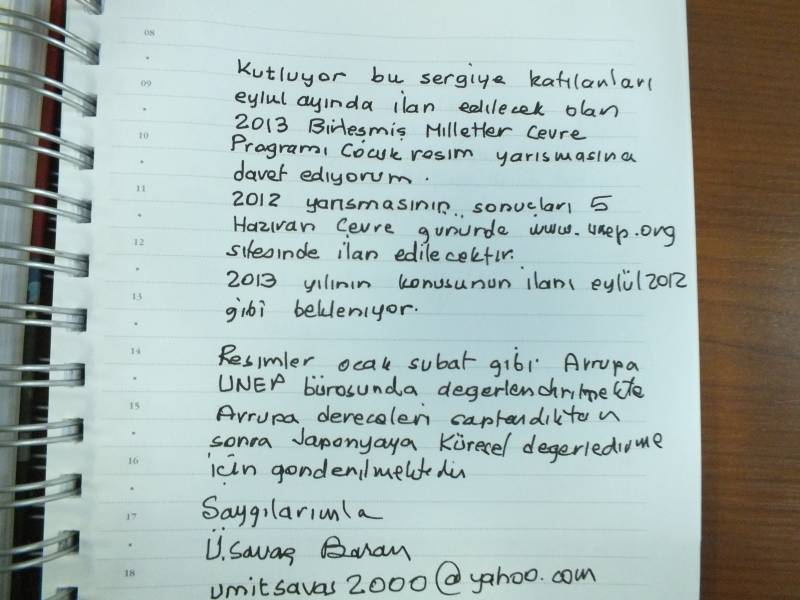 08
Kutluyor bu sergiye katılanları
09
eylul ayında ilan edilecek olan
2013 Birleşmiş Milletler Çevre
10
Programı Çocuk resim yarışmasına
davet ediyorum.
11
2012 yarışmasının sonuçları 5
Haziran Çevre gününde www.unep.org
12
sitesinde ilan edilecektir.
2013 yılının konusunun ilanı eylül 2012
13
gibi bekleniyor.
14
Resimler ocak subat gibi Avrupa
UNEP bürosunda değerlendirilmekte
15
Avrupa dereceleri saptandıktan
sonra Japonyaya Küresel değerledirme
16
için gonderilmektedir
17
Saygılarımla
Ü. Savaş Baran
18
umitsavas2000@yahoo.com